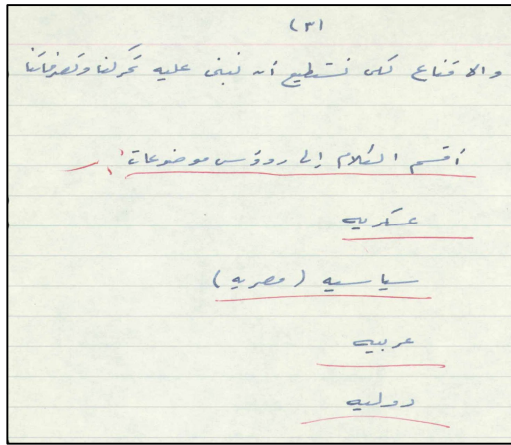 (٣)
والاقناع لكى نستطيع أن نبنى عليه تحركنا وتصرفاتنا
أقسم الكلام إلى رؤوس موضوعات :
عسكريه
سياسيه (مصريه)
عربيه
دوليه